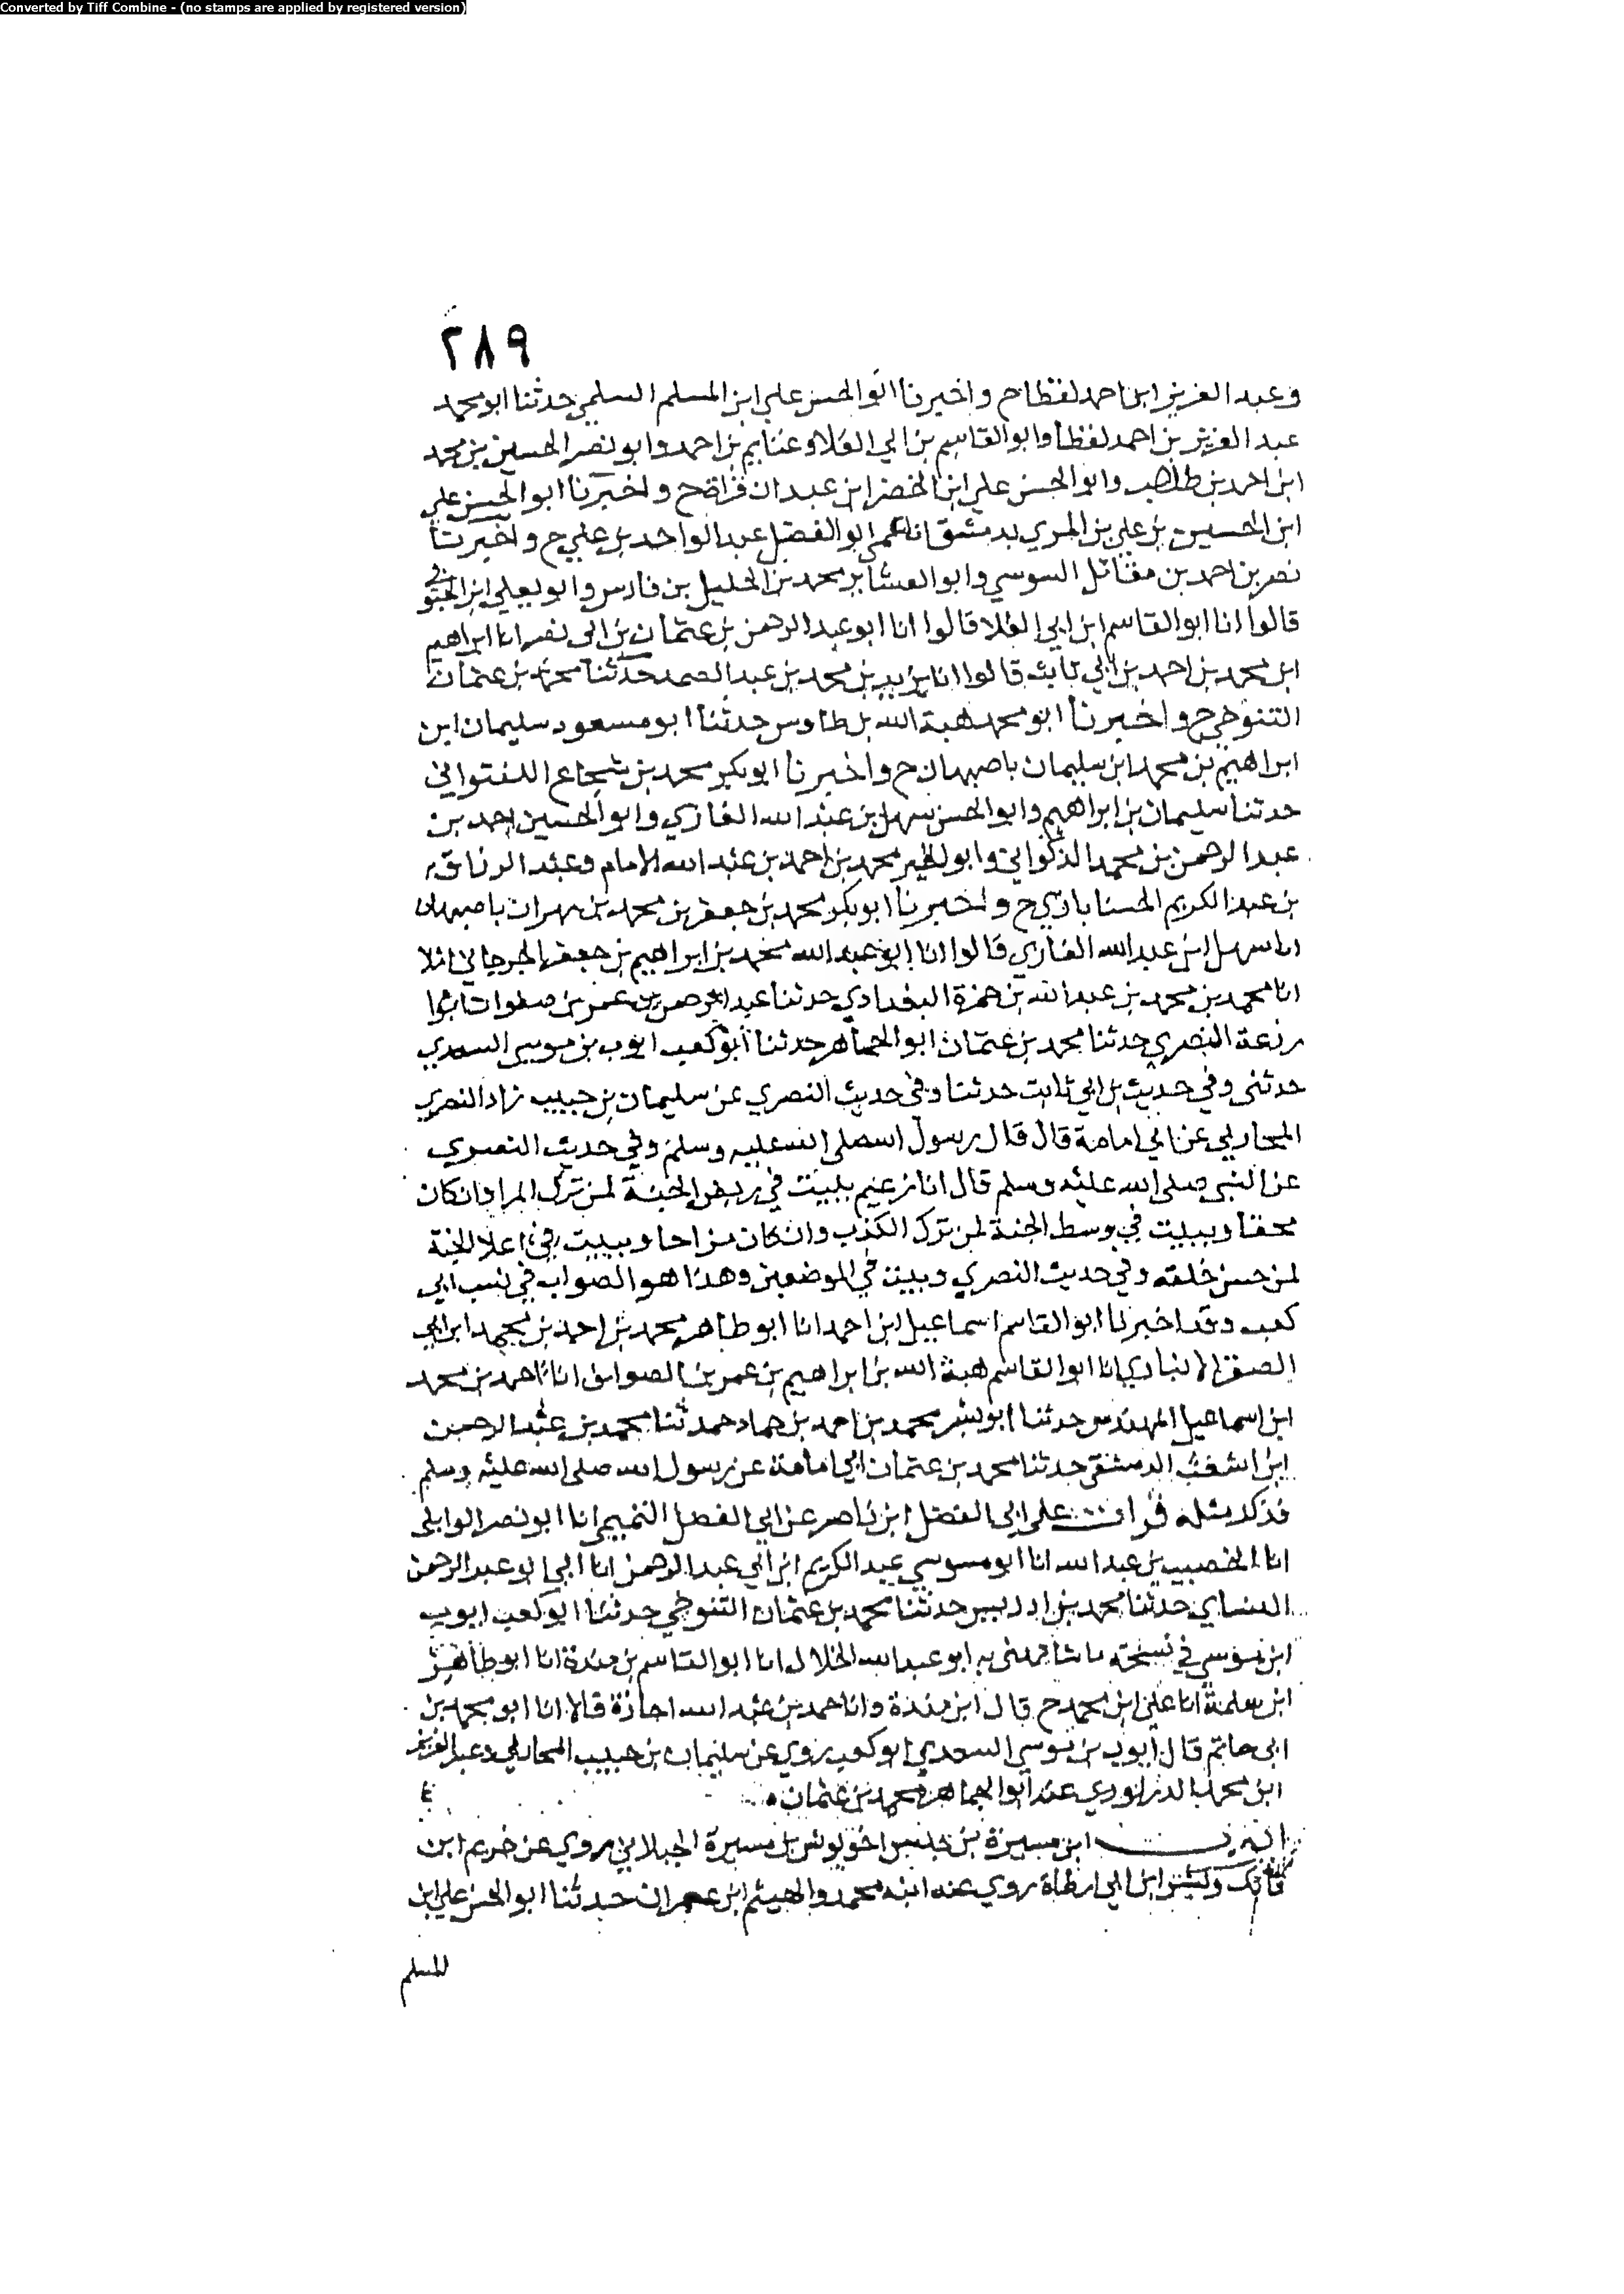 Converted by Tiff Combine - (no stamps are applied by registered version)
٢٨٩
وعبد العزيز ابن احمد لفظا ح واخبرنا ابو الحسن علي ابن المسلم السلمي حدثنا ابو محمد
عبد العزيز بن احمد لفظا وابو القاسم بن ابي العلاء وغنايم بن احمد وابو نصر الحسين بن محمد
ابن احمد بن طلاب وابو الحسن علي ابن الخضر ابن عبدان قراة ح واخبرنا ابو الحسن علي
ابن الحسين بن علي بن المري بدمشق انا عمي ابو الفضل عبد الواحد بن علي ح واخبرنا
نصر بن احمد بن مقاتل السوسي وابو العشاير محمد بن الخليل بن فارس وابو يعلي ابن الحبوبي
قالوا انا ابو القاسم ابن ابي العلا قالوا انا ابو عبد الرحمن بن عثمان بن ابي نصر انا ابراهيم
ابن محمد بن احمد بن ابي ثابت قالوا انا يزيد بن محمد بن عبد الصمد حدثنا محمد بن عثمان
التنوخي ح واخبرنا ابو محمد هبة الله بن طاوس حدثنا ابو مسعود سليمان ابن
ابراهيم بن محمد ابن سليمان باصبهان ح واخبرنا ابو بكر محمد بن شجاع اللفتواني
حدثنا سليمان بن ابراهيم وابو الحسن سهل بن عبد الله الغازي وابو الحسين احمد بن
عبد الرحمن بن محمد الذكواني وابو الخير محمد بن احمد بن عبد الله الامام وعبد الرزاق
بن عبد الكريم الحسنابادي ح واخبرنا ابو بكر محمد بن جعفر بن محمد بن مهران باصبهان
انا سهل ابن عبد الله الغازي قالوا انا ابو عبد الله محمد بن ابراهيم بن جعفر الجرجاني املا
انا محمد بن محمد بن عبد الله بن حمزة البغدادي حدثنا عبد الرحمن بن عمر بن صفوان ابوا
زرعة النصري حدثنا محمد بن عثمان ابو الجماهر حدثنا ابو كعب ايوب بن موسى السعدي
حدثني وفي حديث بن ابي ثابت حدثنا وفي حديث النصري عن سليمان بن حبيب زاد النصري
المحاربي عن ابي امامة قال قال رسول الله صلى الله عليه وسلم وفي حديث النصري
عن النبي صلى الله عليه وسلم قال انا زعيم ببيت في ربض الجنة لمن ترك المرا وان كان
محقا وببيت في وسط الجنة لمن ترك الكذب وان كان مزاحا وببيت في اعلا الجنة
لمن حسن خلقه وفي حديث النصري وبيت في الموضعين وهذا هو الصواب في نسب ابي
كعب وقد اخبرنا ابو القاسم اسماعيل ابن احمد انا ابو طاهر محمد بن احمد بن محمد ابن ابي
الصقر الانباري انا ابو القاسم هبة الله بن ابراهيم بن عمر بن الصواف انا احمد بن محمد
ابن اسماعيل المهندس حدثنا ابو بشر محمد بن احمد بن حماد حدثنا محمد بن عبد الرحمن
ابن اشعث الدمشقي حدثنا محمد بن عثمان ابي امامة عن رسول الله صلى الله عليه وسلم
فذكر مثله قرات على ابي الفضل ابن ناصر عن ابي الفضل التميمي انا ابو نصر الوايلي
انا الخصيب بن عبد الله انا ابو موسى عبد الكريم ابن ابي عبد الرحمن انا ابي ابو عبد الرحمن
النساي حدثنا محمد بن ادريس حدثنا محمد بن عثمان التنوخي حدثنا ابو كعب ايوب
ابن موسى في نسخة ما شافهني به ابو عبد الله الخلال انا ابو القاسم بن مندة انا ابو طاهر
ابن سلمة انا علي ابن محمد ح قال ابن مندة وانا حمد بن عبد الله اجازة قالا انا ابو محمد بن
ابي حاتم قال ايوب بن موسى السعدي ابو كعب روي عن سليمان بن حبيب المحاربي وعبد العزيز
ابن محمد الدراوردي عنه ابو الجماهر محمد بن عثمان
ابن ميسرة بن حلبس اخو يونس بن ميسرة الجبلاني روي عن خريم ابن
فاتك وبسر ابن ابي ارطاة روي عنه ابنه محمد والهيثم ابن عمران حدثنا ابو الحسن علي ابن
المسلم